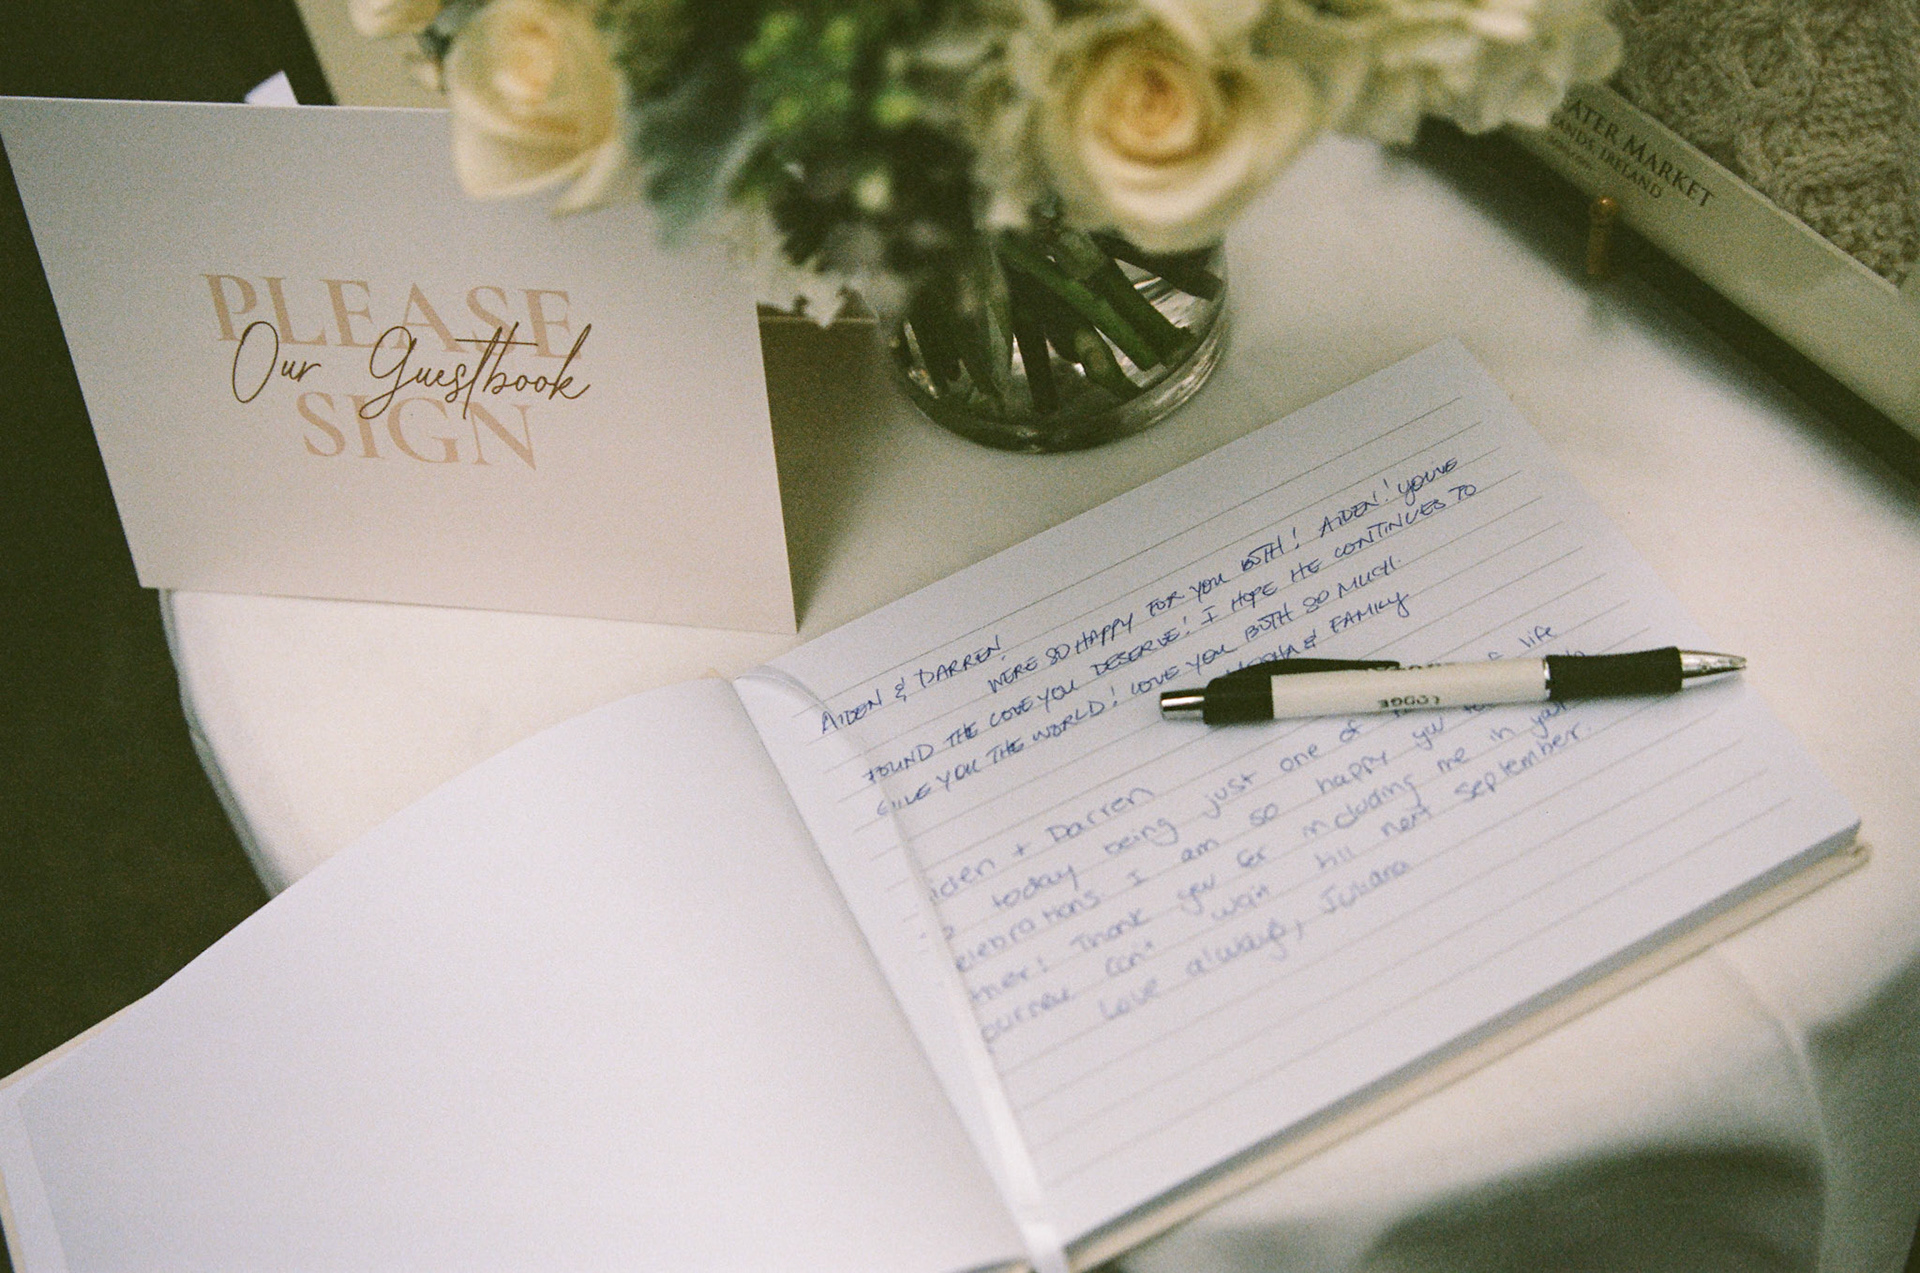 PLEASE
Our Guestbook
SIGN
ATER MARKET
LANDS, IRELAND
AIDEN & DARREN!
WE'RE SO HAPPY FOR YOU BOTH! AIDEN! YOU'VE
FOUND THE LOVE YOU DESERVE! I HOPE HE CONTINUES TO
GIVE YOU THE WORLD! LOVE YOU BOTH SO MUCH.
& FAMILY
iden + Darren
today being just one of life
elebrations I am so happy you
ther! Thank you for including me in your
ourney can't wait till next September.
Love always, Juliana